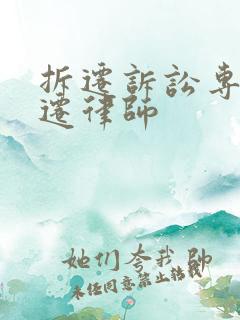 拆遷訴訟專
遷律師
她们夸我 帥
未任同意禁止转载